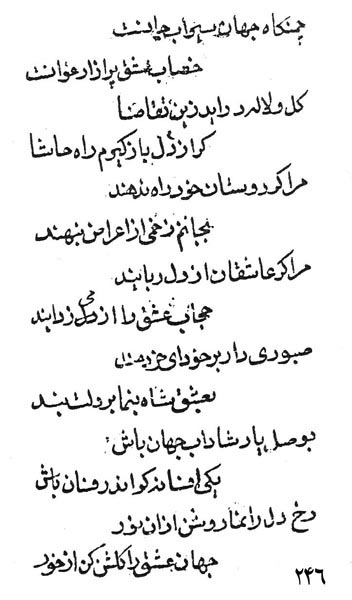 چمنگاه جهان سیراب جانست
خضاب عشق پر از ارغوانست
گل و لاله در اید زین تقاضا
کر از دل باز گیرم راه حاشا
مرا کر دوستان خود راه ندهند
بجانم زخمی از اعراض بنهند
مرا کر عاشقان از دل ربایند
حجاب عشق را از دل می زدایند
صبوری دار بر خود ای
بعشق شاه بنما بر ولت بند
بوصل یار شاداب جهان باش
یکی افسانه کو اندر فسان باش
رخ دل را نما روشن از ان نور
جهان عشق را کلشن کن از خور
۲۴۶